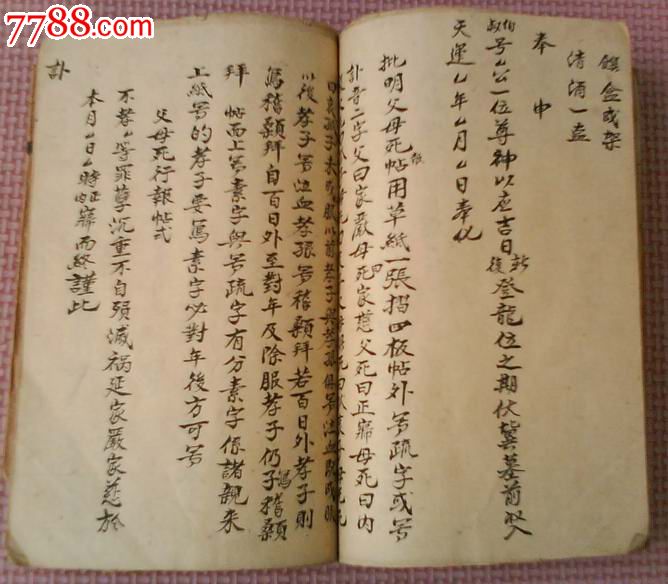 7788.com
饌盒或架
清酒一壺
奉申
伯叔号厶公一位尊神以应吉日新後登龍位之期伏冀墓前収入
天運厶年厶月厶日奉仪
批明父母死帖用草紙一張摺四板帖外写疏字或写
訃音二字父曰家嚴母曰家慈父死曰正寢母死曰内
以後孝子写泣血孝孫写稽顙拜若百日外孝子則
写稽顙拜自百日外至對年及除服孝子仍子写稽顙
拜帖面上写素字與写疏字有分素字係諸親来
上紙写的孝子要写素字必對年後方可写
父母死行報帖式
不孝厶等罪孽沉重不自殞滅禍延家嚴家慈於
本月厶日厶時正内寢而終謹此
訃